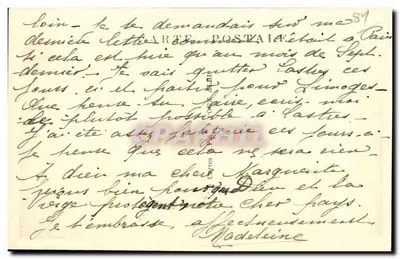 loin - Je te demandais sur ma 81
dernière lettre comme c'était à Paris
CARTE POSTALE
si cela est pire qu'au mois de Sept.
dernier - Je vais quitter Castres ces
jours ci et partir pour Limoges -
Que pense tu faire, ecris-moi
le plutôt possible à Castres -
J'ai été assez fatiguée ces jours-ci
je pense que cela ne sera rien -
A dieu ma chère Marguerite
prions bien pour que Dieu et la
Vierge protègent notre cher pays.
Je t'embrasse affectueusement
Madeleine